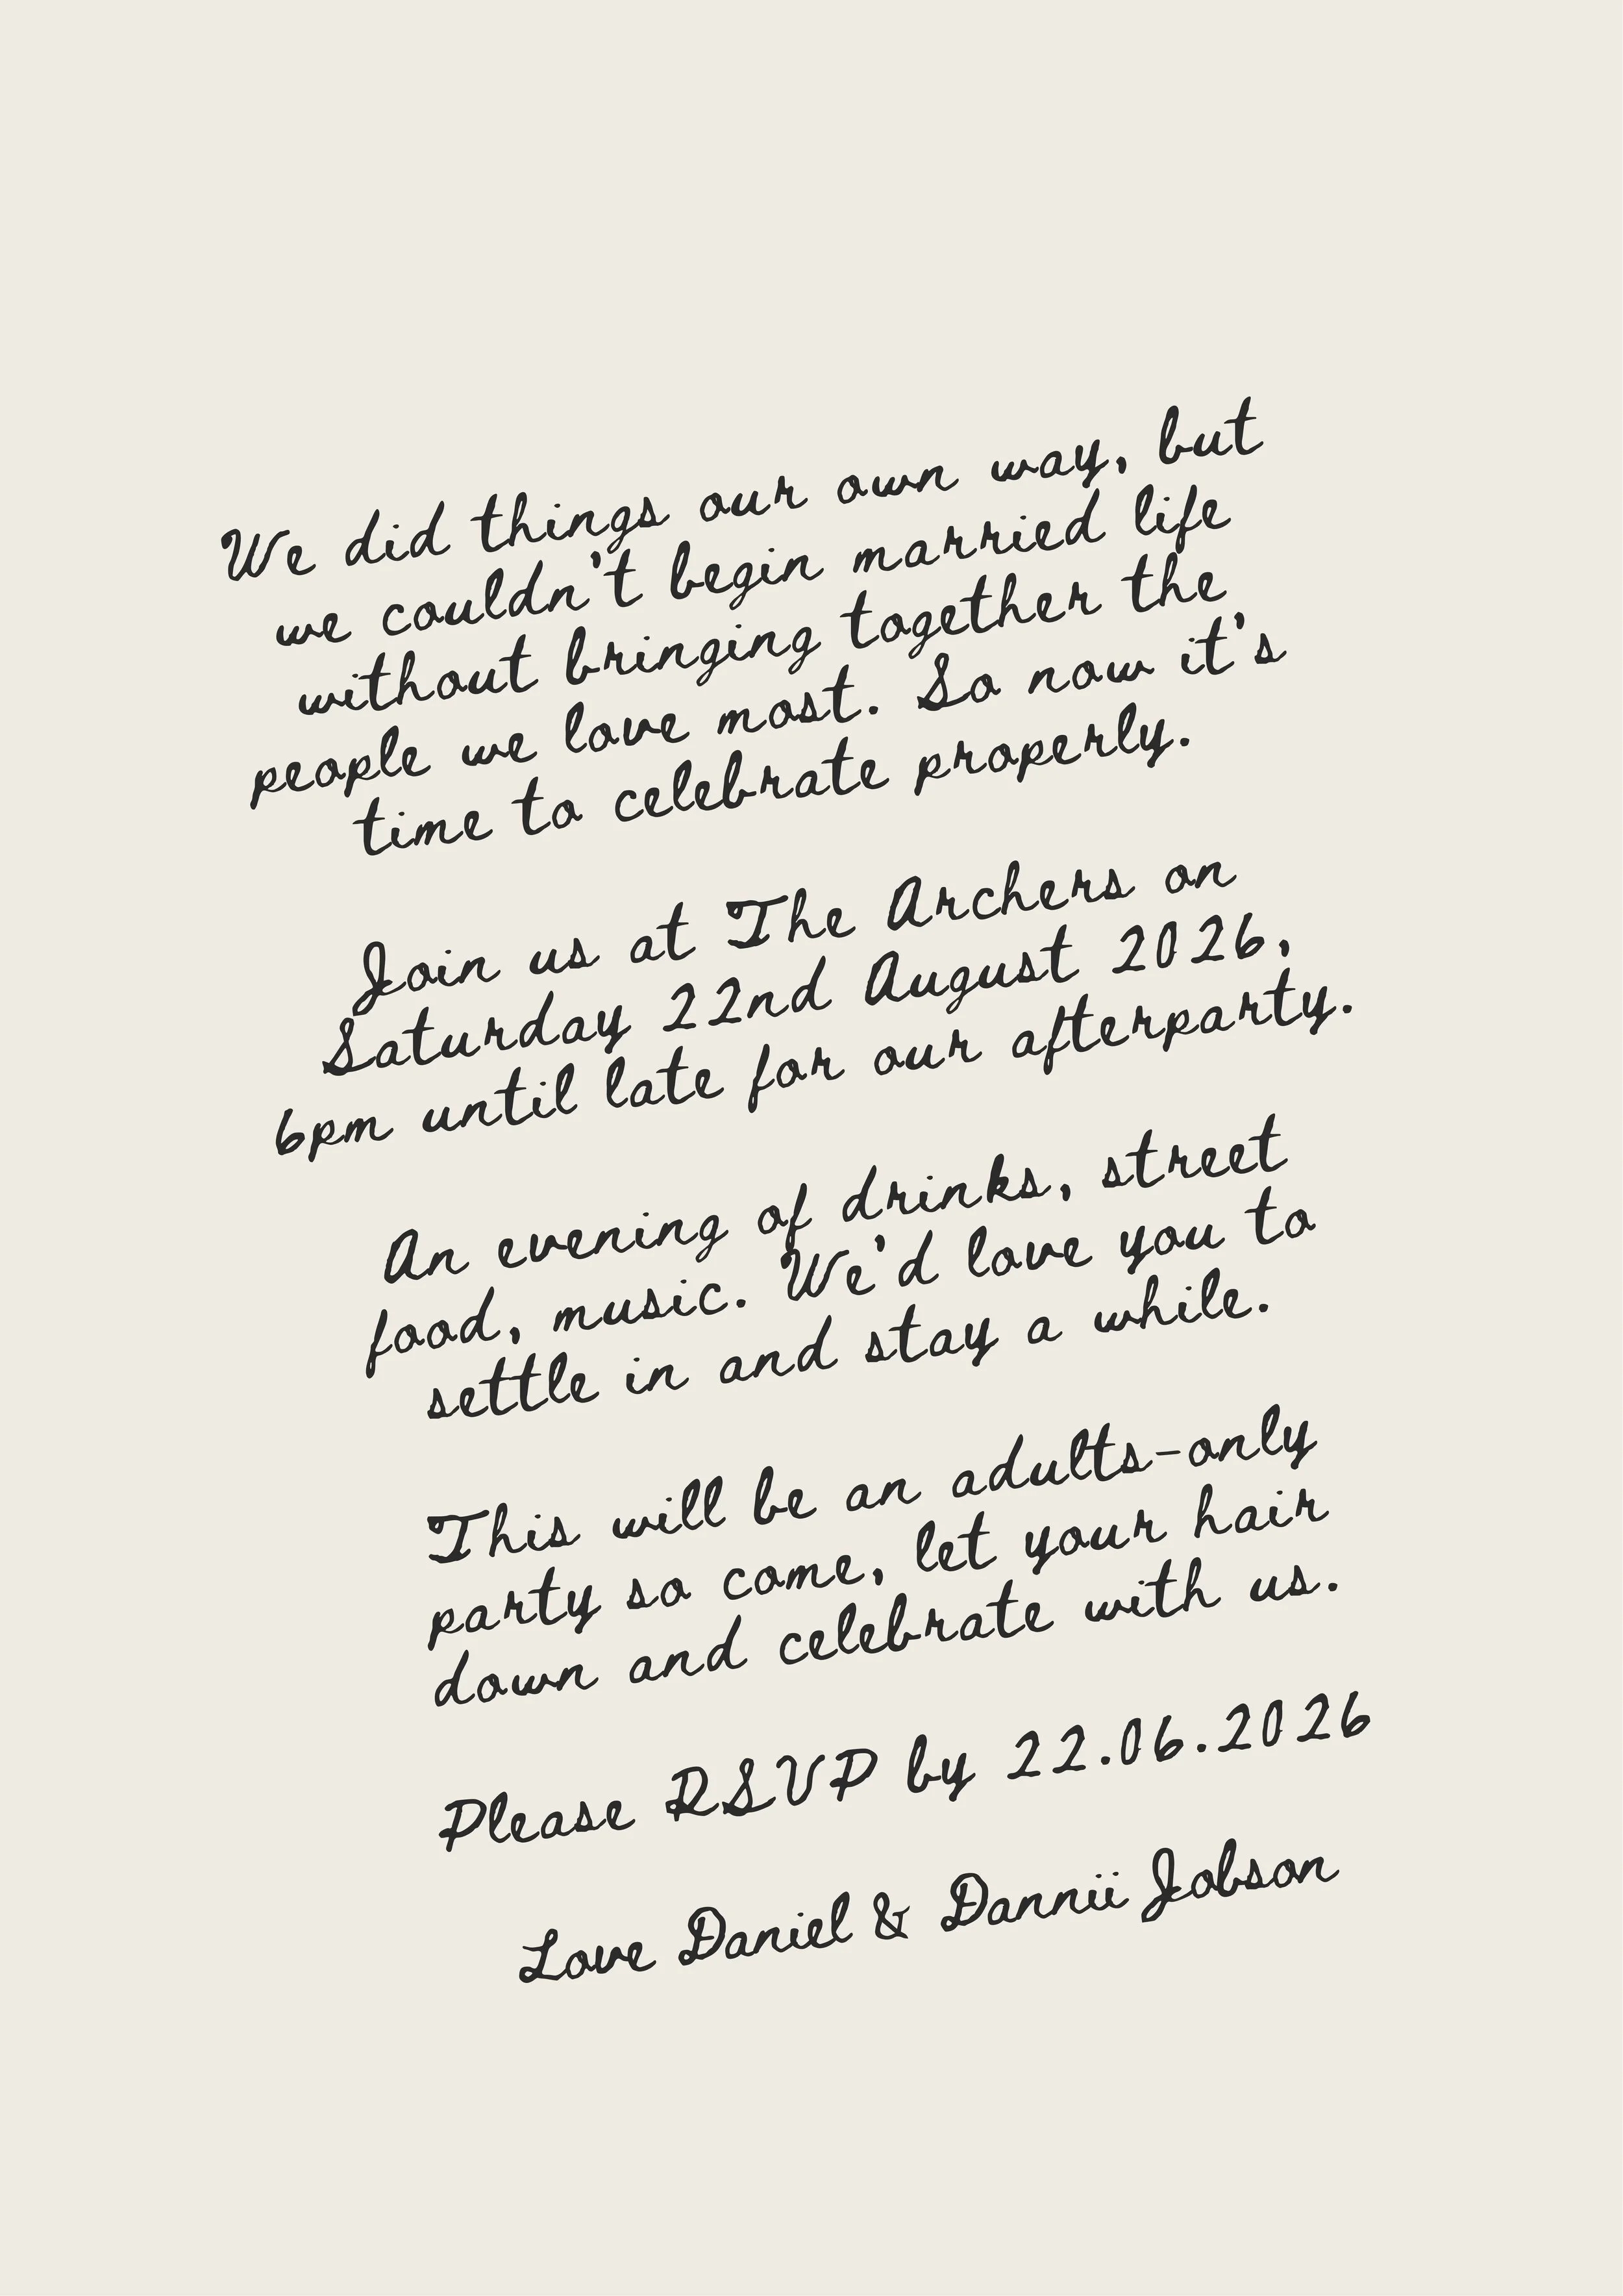 We did things our own way, but
we couldn't begin married life
without bringing together the
people we love most. So now it's
time to celebrate properly.
Join us at The Archers on
Saturday 22nd August 2026,
6pm until late for our afterparty.
An evening of drinks, street
food, music. We'd love you to
settle in and stay a while.
This will be an adults-only
party so come, let your hair
down and celebrate with us.
Please RSVP by 22.06.2026
Love Daniel & Dannii Jobson